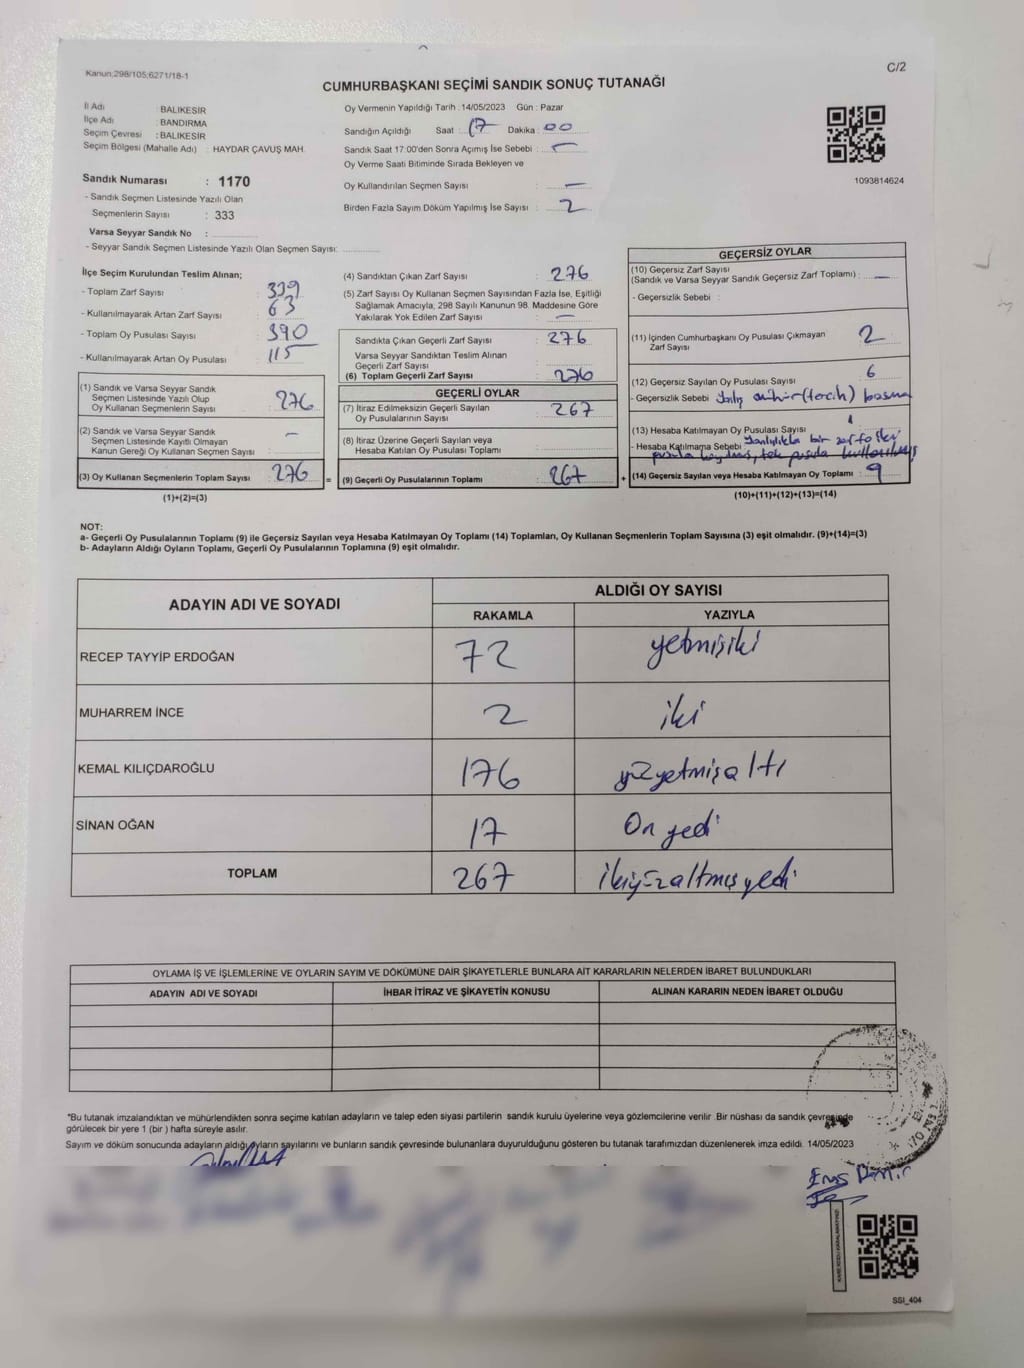 Kanun;298/105;6271/18-1
C/2
CUMHURBAŞKANI SEÇİMİ SANDIK SONUÇ TUTANAĞI
İl Adı : BALIKESİR
İlçe Adı : BANDIRMA
Seçim Çevresi : BALIKESİR
Seçim Bölgesi (Mahalle Adı) : HAYDAR ÇAVUŞ MAH.
Sandık Numarası : 1170
- Sandık Seçmen Listesinde Yazılı Olan
Seçmenlerin Sayısı : 333
Varsa Seyyar Sandık No :
- Seyyar Sandık Seçmen Listesinde Yazılı Olan Seçmen Sayısı:
Oy Vermenin Yapıldığı Tarih : 14/05/2023 Gün : Pazar
Sandığın Açıldığı Saat : 17 Dakika : 00
Sandık Saat 17:00'den Sonra Açımış İse Sebebi : —
Oy Verme Saati Bitiminde Sırada Bekleyen ve
Oy Kullandırılan Seçmen Sayısı : —
Birden Fazla Sayım Döküm Yapılmış İse Sayısı : 2
1093814624
İlçe Seçim Kurulundan Teslim Alınan;
- Toplam Zarf Sayısı : 339
- Kullanılmayarak Artan Zarf Sayısı : 63
- Toplam Oy Pusulası Sayısı : 390
- Kullanılmayarak Artan Oy Pusulası : 115
(1) Sandık ve Varsa Seyyar Sandık
Seçmen Listesinde Yazılı Olup
Oy Kullanan Seçmenlerin Sayısı : 276
(2) Sandık ve Varsa Seyyar Sandık
Seçmen Listesinde Kayıtlı Olmayan
Kanun Gereği Oy Kullanan Seçmen Sayısı : —
(3) Oy Kullanan Seçmenlerin Toplam Sayısı : 276
(1)+(2)=(3)
(4) Sandıktan Çıkan Zarf Sayısı : 276
(5) Zarf Sayısı Oy Kullanan Seçmen Sayısından Fazla İse, Eşitliği
Sağlamak Amacıyla; 298 Sayılı Kanunun 98. Maddesine Göre
Yakılarak Yok Edilen Zarf Sayısı : —
Sandıkta Çıkan Geçerli Zarf Sayısı : 276
Varsa Seyyar Sandıktan Teslim Alınan
Geçerli Zarf Sayısı :
(6) Toplam Geçerli Zarf Sayısı : 276
GEÇERLİ OYLAR
(7) İtiraz Edilmeksizin Geçerli Sayılan
Oy Pusulalarının Sayısı : 267
(8) İtiraz Üzerine Geçerli Sayılan veya
Hesaba Katılan Oy Pusulası Toplamı :
= (9) Geçerli Oy Pusulalarının Toplamı : 267
GEÇERSİZ OYLAR
(10) Geçersiz Zarf Sayısı
(Sandık ve Varsa Seyyar Sandık Geçersiz Zarf Toplamı) : —
- Geçersizlik Sebebi :
(11) İçinden Cumhurbaşkanı Oy Pusulası Çıkmayan
Zarf Sayısı : 2
(12) Geçersiz Sayılan Oy Pusulası Sayısı : 6
- Geçersizlik Sebebi : Yanlış mühür (tercih) basma
(13) Hesaba Katılmayan Oy Pusulası Sayısı : 1
- Hesaba Katılmama Sebebi : Yanlışlıkla bir zarfa iki
pusula koyulmuş, tek pusula kullanılmış
+ (14) Geçersiz Sayılan veya Hesaba Katılmayan Oy Toplamı : 9
(10)+(11)+(12)+(13)=(14)
NOT:
a- Geçerli Oy Pusulalarının Toplamı (9) ile Geçersiz Sayılan veya Hesaba Katılmayan Oy Toplamı (14) Toplamları, Oy Kullanan Seçmenlerin Toplam Sayısına (3) eşit olmalıdır. (9)+(14)=(3)
b- Adayların Aldığı Oyların Toplamı, Geçerli Oy Pusulalarının Toplamına (9) eşit olmalıdır.
ADAYIN ADI VE SOYADI ALDIĞI OY SAYISI
RAKAMLA YAZIYLA
RECEP TAYYİP ERDOĞAN 72 yetmişiki
MUHARREM İNCE 2 iki
KEMAL KILIÇDAROĞLU 176 yüzyetmişaltı
SİNAN OĞAN 17 On yedi
TOPLAM 267 ikiyüzaltmışyedi
OYLAMA İŞ VE İŞLEMLERİNE VE OYLARIN SAYIM VE DÖKÜMÜNE DAİR ŞİKAYETLERLE BUNLARA AİT KARARLARIN NELERDEN İBARET BULUNDUKLARI
ADAYIN ADI VE SOYADI İHBAR İTİRAZ VE ŞİKAYETİN KONUSU ALINAN KARARIN NEDEN İBARET OLDUĞU
*Bu tutanak imzalandıktan ve mühürlendikten sonra seçime katılan adayların ve talep eden siyasi partilerin sandık kurulu üyelerine veya gözlemcilerine verilir. Bir nüshası da sandık çevresinde
görülecek bir yere 1 (bir ) hafta süreyle asılır.
Sayım ve döküm sonucunda adayların aldığı oyların sayılarını ve bunların sandık çevresinde bulunanlara duyurulduğunu gösteren bu tutanak tarafımızdan düzenlenerek imza edildi. 14/05/2023
Enes Demir
KARE KODU KARALAMAYINIZ!
SSI_404